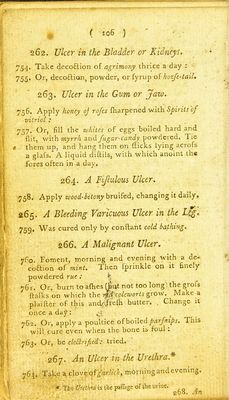 ( 106 )
262. Ulcer in the Bladder or Kidneys.
754. Take decoction of agrimony thrice a day :
755. Or, decoction, powder, or syrup of horse-tail.
263. Ulcer in the Gum or Jaw.
756. Apply honey of roses sharpened with Spirits of
vitriol :
757. Or, fill the whites of eggs boiled hard and
slit, with myrrh and sugar-candy powdered. Tie
them up, and hang them on sticks lying across
a glass. A liquid distils, with which anoint the
sores often in a day.
264. A Fistulous Ulcer.
758. Apply wood-betony bruised, changing it daily.
265. A Bleeding Varicuous Ulcer in the Leg.
759. Was cured only by constant cold bathing.
266. A Malignant Ulcer.
760. Foment, morning and evening with a de-
coction of mint. Then sprinkle on it finely
powdered rue :
761. Or, burn to ashes (but not too long) the gross
stalks on which the coleworts grow. Make a
plaister of this and fresh butter. Change it
once a day :
762. Or, apply a poultice of boiled parsnips. This
will cure even when the bone is foul :
763. Or, be electrified : tried.
267. An Ulcer in the Urethra.*
764. Take a clove of garlick, morning and evening.
* The Urethra is the passage of the urine.
268. An